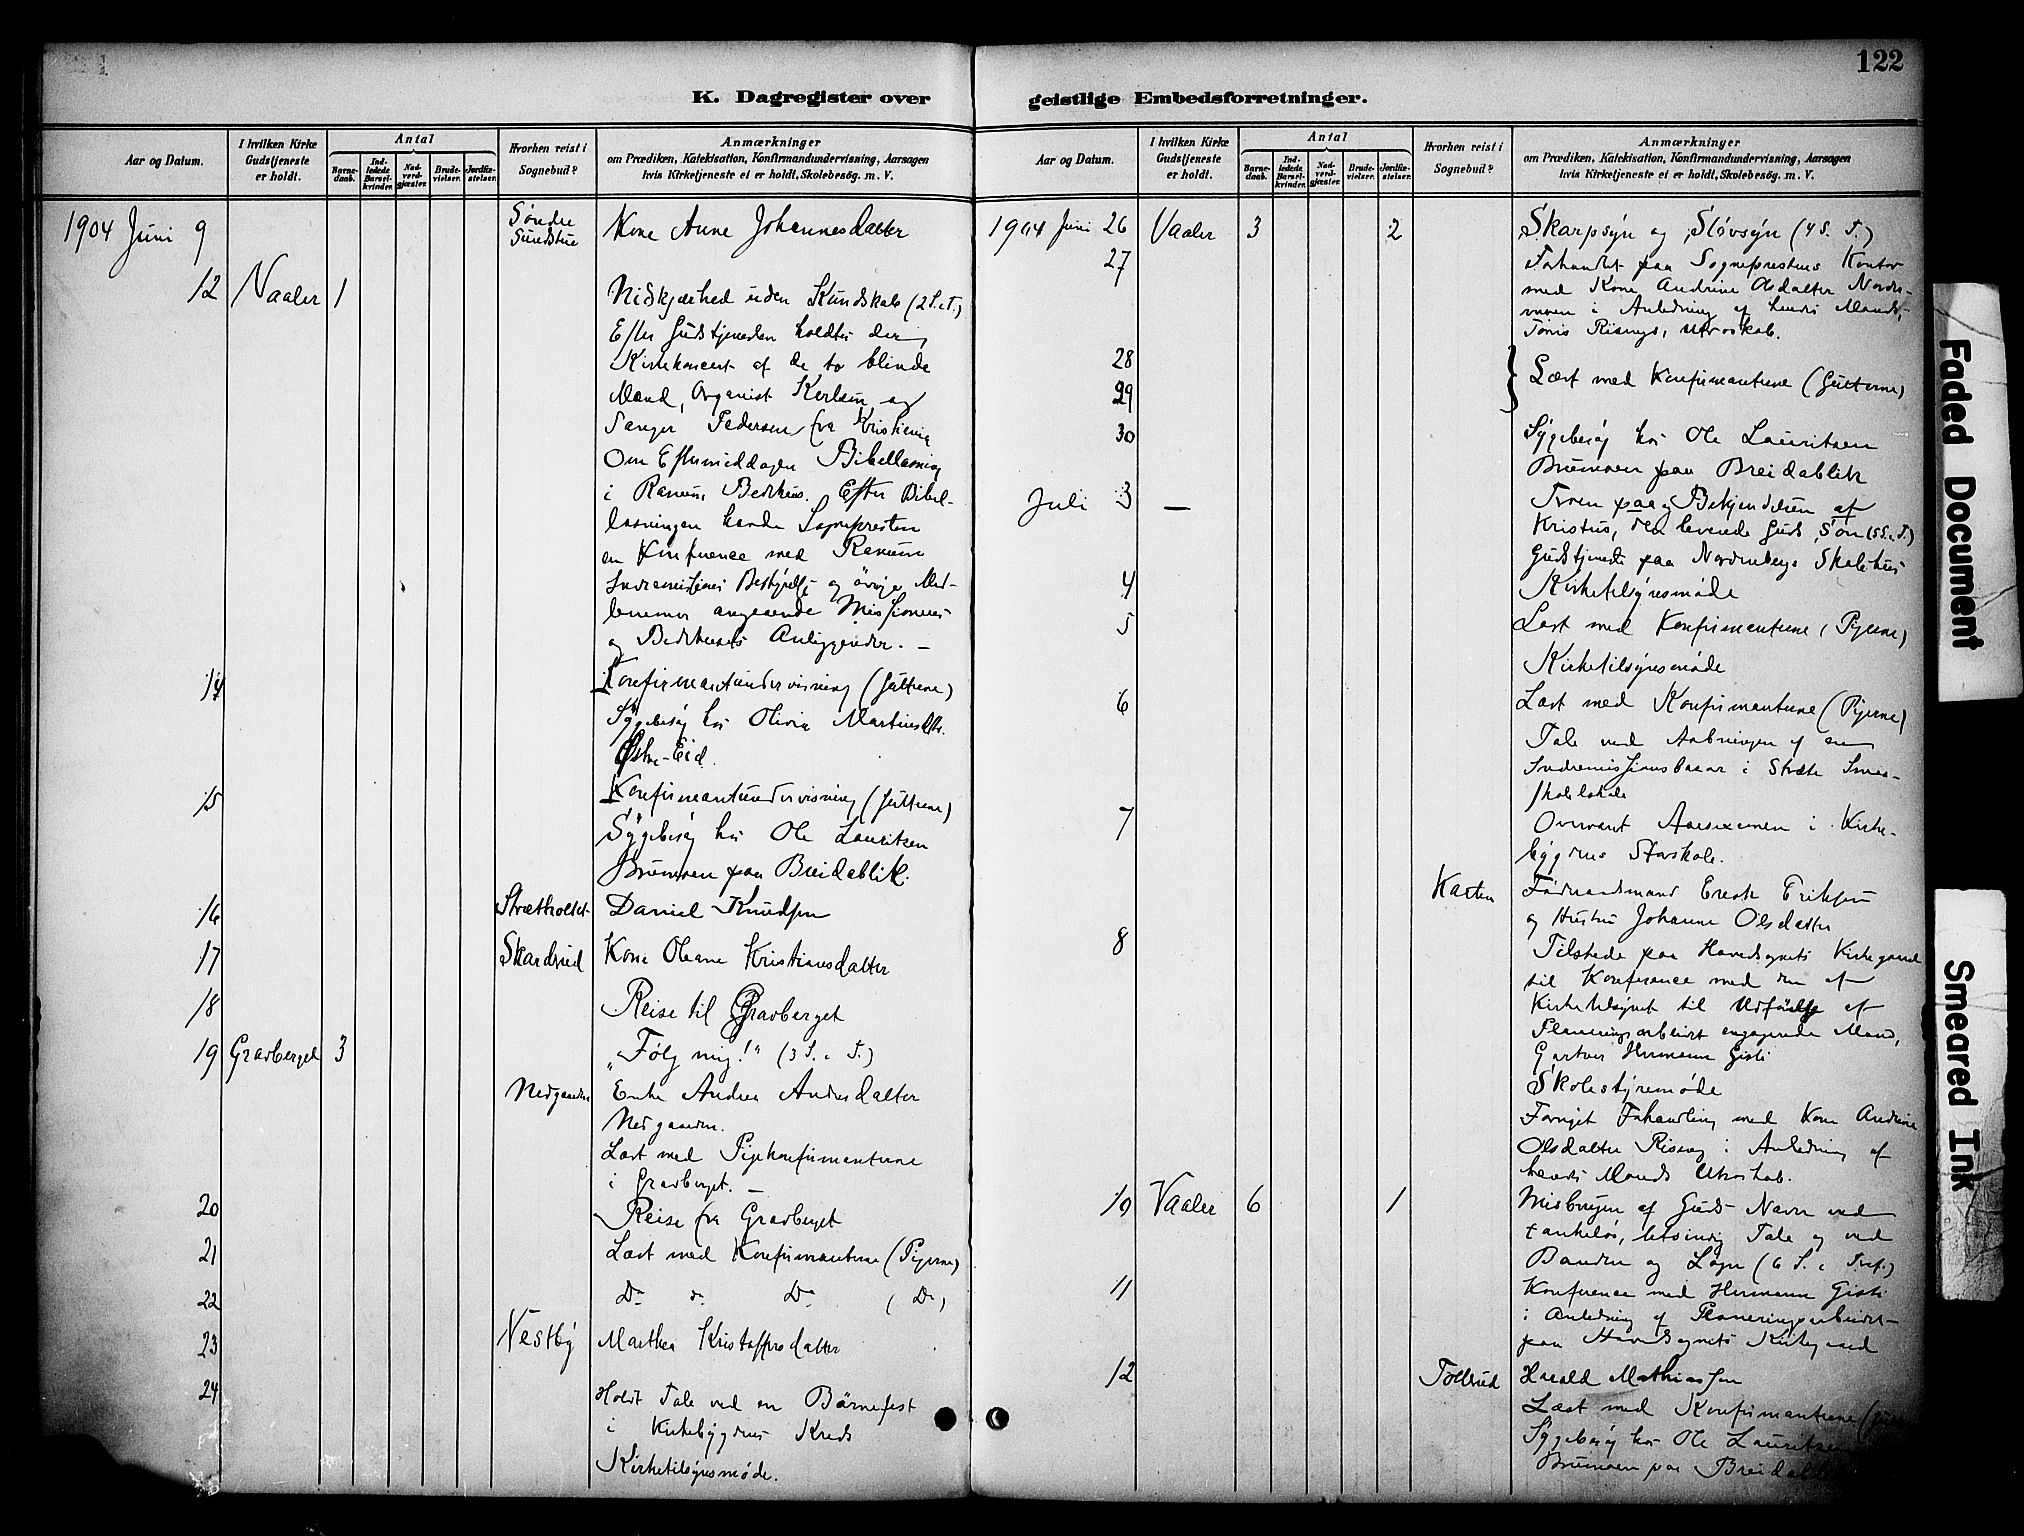 122
K. Dagregister over geistlige Embedsforretninger.
Aar og Datum.
I hvilken Kirke Gudstjeneste er holdt.
Antal
Barne-daab.
Ind-ledede Barsel-kvinder.
Nad-verd-gjæster.
Brude-vielser.
Jordfæ-stelser.
Hvorhen reist i Sognebud?
Anmærkninger
om Prædiken, Katekisation, Konfirmandundervisning, Aarsagen
hvis Kirketjeneste ei er holdt, Skolebesøg. m. V.
1904 Juni 9 Søndre Sundstue Kone Anne Johannesdatter
12 Vaaler 1 Nidkjærhed uden Kundskab (2 S. e. T.)
Efter Gudstjenesten holdtes der
Kirkekoncert af de to blinde
Mænd, Organist Karlsen og
Sanger Pedersen fra Kristiania
Om Eftermiddagen Bibellæsning
i Ranum Bedehus. Efter Bibel-
læsningen havde Sognepresten
en Konference med Ranum
Indremissions Bestyrelse og øvrige Med-
lemmer angaaende Missionens
og Bedehusets Anliggender. —
14 Konfirmantundervisning (Guttene)
Sygebesøg hos Olivia Martinsdtr.
Østre-Eid.
15 Konfirmantundervisning (Guttene)
Sygebesøg hos Ole Lauritsen
Brumoen paa Breidablik.
16 Strætholtet Daniel Knudsen
17 Skardrud Kone Oleane Kristiansdatter
18 Reise til Gravberget
19 Gravberget 3 "Følg mig!" (3 S. e. T.)
Nedgaarden Enke Andrea Andersdatter
Nedgaarden.
Læst med Pigekonfirmanterne
i Gravberget. —
20 Reise fra Gravberget
21 Læst med Konfirmanterne (Pigerne)
22 Do do Do (Do)
23 Vestby Marthea Kristoffersdatter
24 Holdt Tale ved en Børnefest
i Kirkebygdens Kreds
Kirketilsynsmøde.
Aar og Datum.
I hvilken Kirke Gudstjeneste er holdt.
Antal
Barne-daab.
Ind-ledede Barsel-kvinder.
Nad-verd-gjæster.
Brude-vielser.
Jordfæ-stelser.
Hvorhen reist i Sognebud?
Anmærkninger
om Prædiken, Katekisation, Konfirmandundervisning, Aarsagen
hvis Kirketjeneste ei er holdt, Skolebesøg. m. V.
1904 Juni 26 Vaaler 3 2 Skarpsyn og Sløvsyn (4 S. T.)
27 Forhandlet paa Sogneprestens Kontor
med Kone Andrine Olsdatter
i Anledning af hendes Mands,
Utroskab.
28
29 Læst med Konfirmanterne (Gutterne)
30 Sygebesøg hos Ole Lauritsen
Brumoen paa Breidablik
Juli 3 — Troen paa og Bekjendelsen af
Kristus, den levende Guds Søn (5 S. e. T.)
Gudstjeneste paa Nordenbergs Skolehus
4 Kirketilsynsmøde
5 Læst med Konfirmanterne (Pigerne)
Kirketilsynsmøde
6 Læst med Konfirmanterne (Pigerne)
Tale ved Aabningen af en
Indremissionsbasar i Stræte Smaa-
skolelokale
7 Overværet Aarsexamen i Kirke-
bygdens Storskole.
Kasten Føderaadsmand Erik Eriksen
og Hustru Johanne Olsdatter
8 Tilstede paa Hovedsognets Kirkegaard
til Konference med den af
Kirketilsynet til Udførelse af
Planeringsarbeidet engagerede Mand,
Gartner Hermann Gisti
Skolestyremøde
Fornyet Forhandling med Kone Andrine
Olsdatter i Anledning af
hendes Mands Utroskab.
10 Vaaler 6 1 Misbrugen af Guds Navn ved
tankeløs, letsindig Tale og ved
Banden og Løgn (6 S. e. Tref.)
11 Konference med Hermann Gisti
i Anledning af Planeringsarbeidet
paa Hovedsognets Kirkegaard
12 Tollerud Harald Mathiassen
Læst med Konfirmanterne
Sygebesøg hos Ole Lauritsen
Brumoen paa Breidablik
Faded Document
Smeared Ink